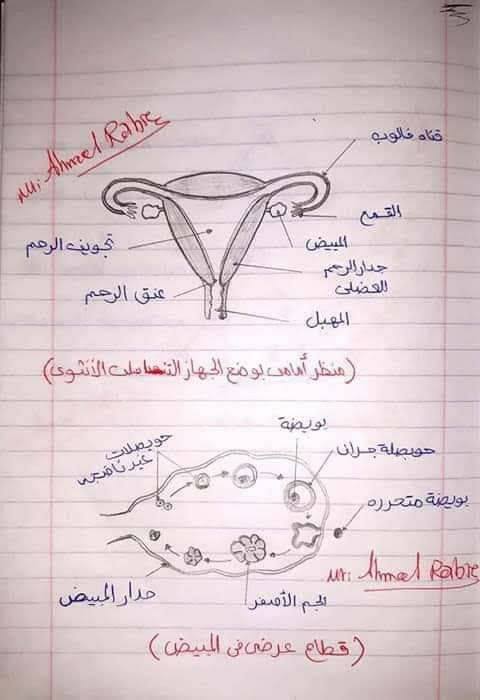 Mr: Ahmed Rabie
قناه فالوب
القمع
المبيض
تجويف الرحم
جدار الرحم
العضلى
عنق الرحم
المهبل
(منظر أمامى يوضع الجهاز التناسلى الأنثوى)
بويضة
حويصلات
غير ناضجه
حويصلة جراف
بويضة متحرره
Mr: Ahmed Rabie
جدار المبيض
الجسم الأصفر
(قطاع عرضى فى المبيض)